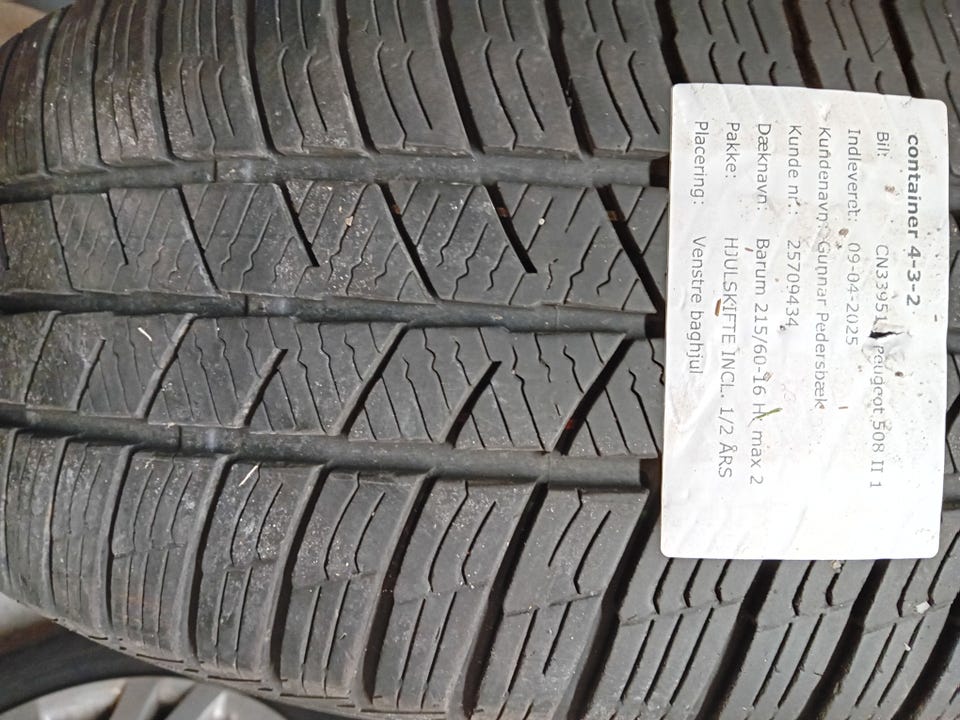 container 4-3-2
Bil: CN33951 Peugeot 508 II 1
Indleveret: 09-04-2025
Kundenavn: Gunnar Pedersbæk
Kunde nr.: 25709434
Dæknavn: Barum 215/60-16 H, max 2
Pakke: HJULSKIFTE INCL. 1/2 ÅRS
Placering: Venstre baghjul